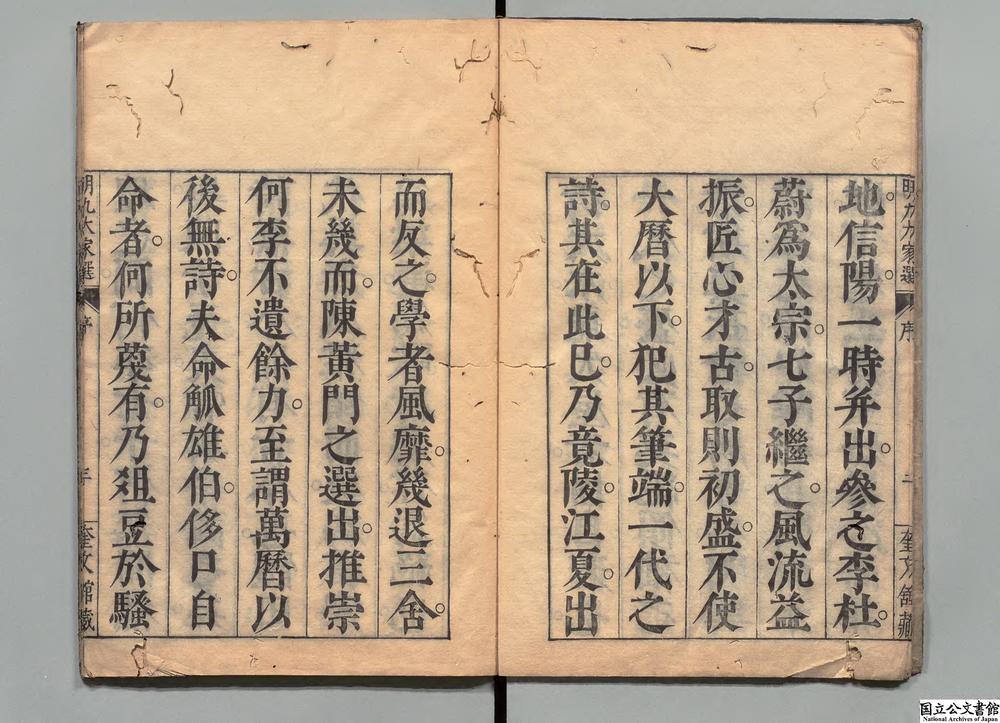 地。信陽。一時并出。參之李杜。
蔚爲大宗。七子繼之。風流益
振。匠心才古。取則初盛。不使
大曆以下。犯其筆端。一代之
詩。其在此巳。乃竟陵江夏。出
而反之。學者風靡。幾退三舍。
未幾而。陳黃門之選出。推崇
何李不遺餘力。至謂萬曆以
後無詩。夫命觚雄伯。侈口自
命者。何所蔑有。乃爼豆於騷
明九大家選
序
奎文館藏
明九大家選
序
奎文館藏
国立公文書館
National Archives of Japan